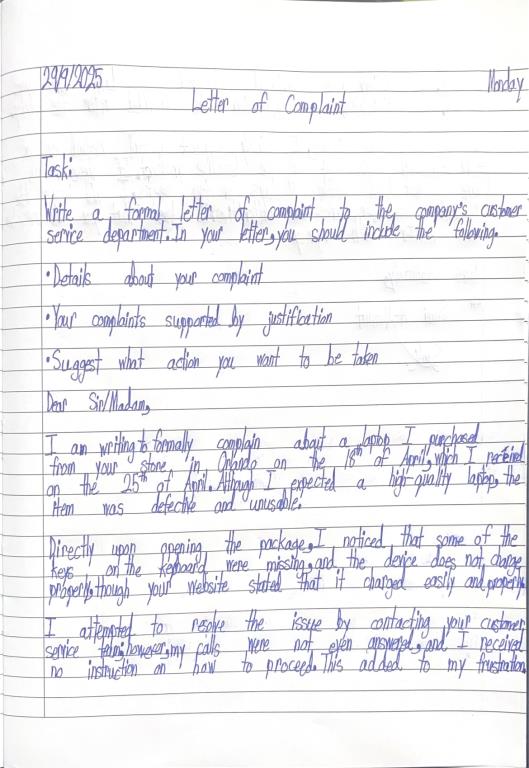 29/9/2025 Monday
Letter of Complaint
Task:
Write a formal letter of complaint to the company's customer
service department. In your letter, you should include the following.
• Details about your complaint
• Your complaints supported by justification
• Suggest what action you want to be taken
Dear Sir/Madam,
I am writing to formally complain about a laptop I purchased
from your store in on the 18th of April, which I received
on the 25th of April. Although I expected a high-quality laptop, the
item was defective and unusable.
Directly upon opening the package, I noticed that some of the
keys on the keyboard were missing, and the device does not charge
properly, though your website stated that it charged easily and properly.
I attempted to resolve the issue by contacting your customer
service however, my calls were not even answered, and I received
no instruction on how to proceed. This added to my frustration.